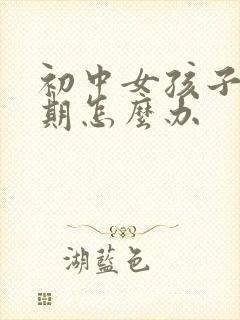 初中女孩子
期怎麼办
湖藍色